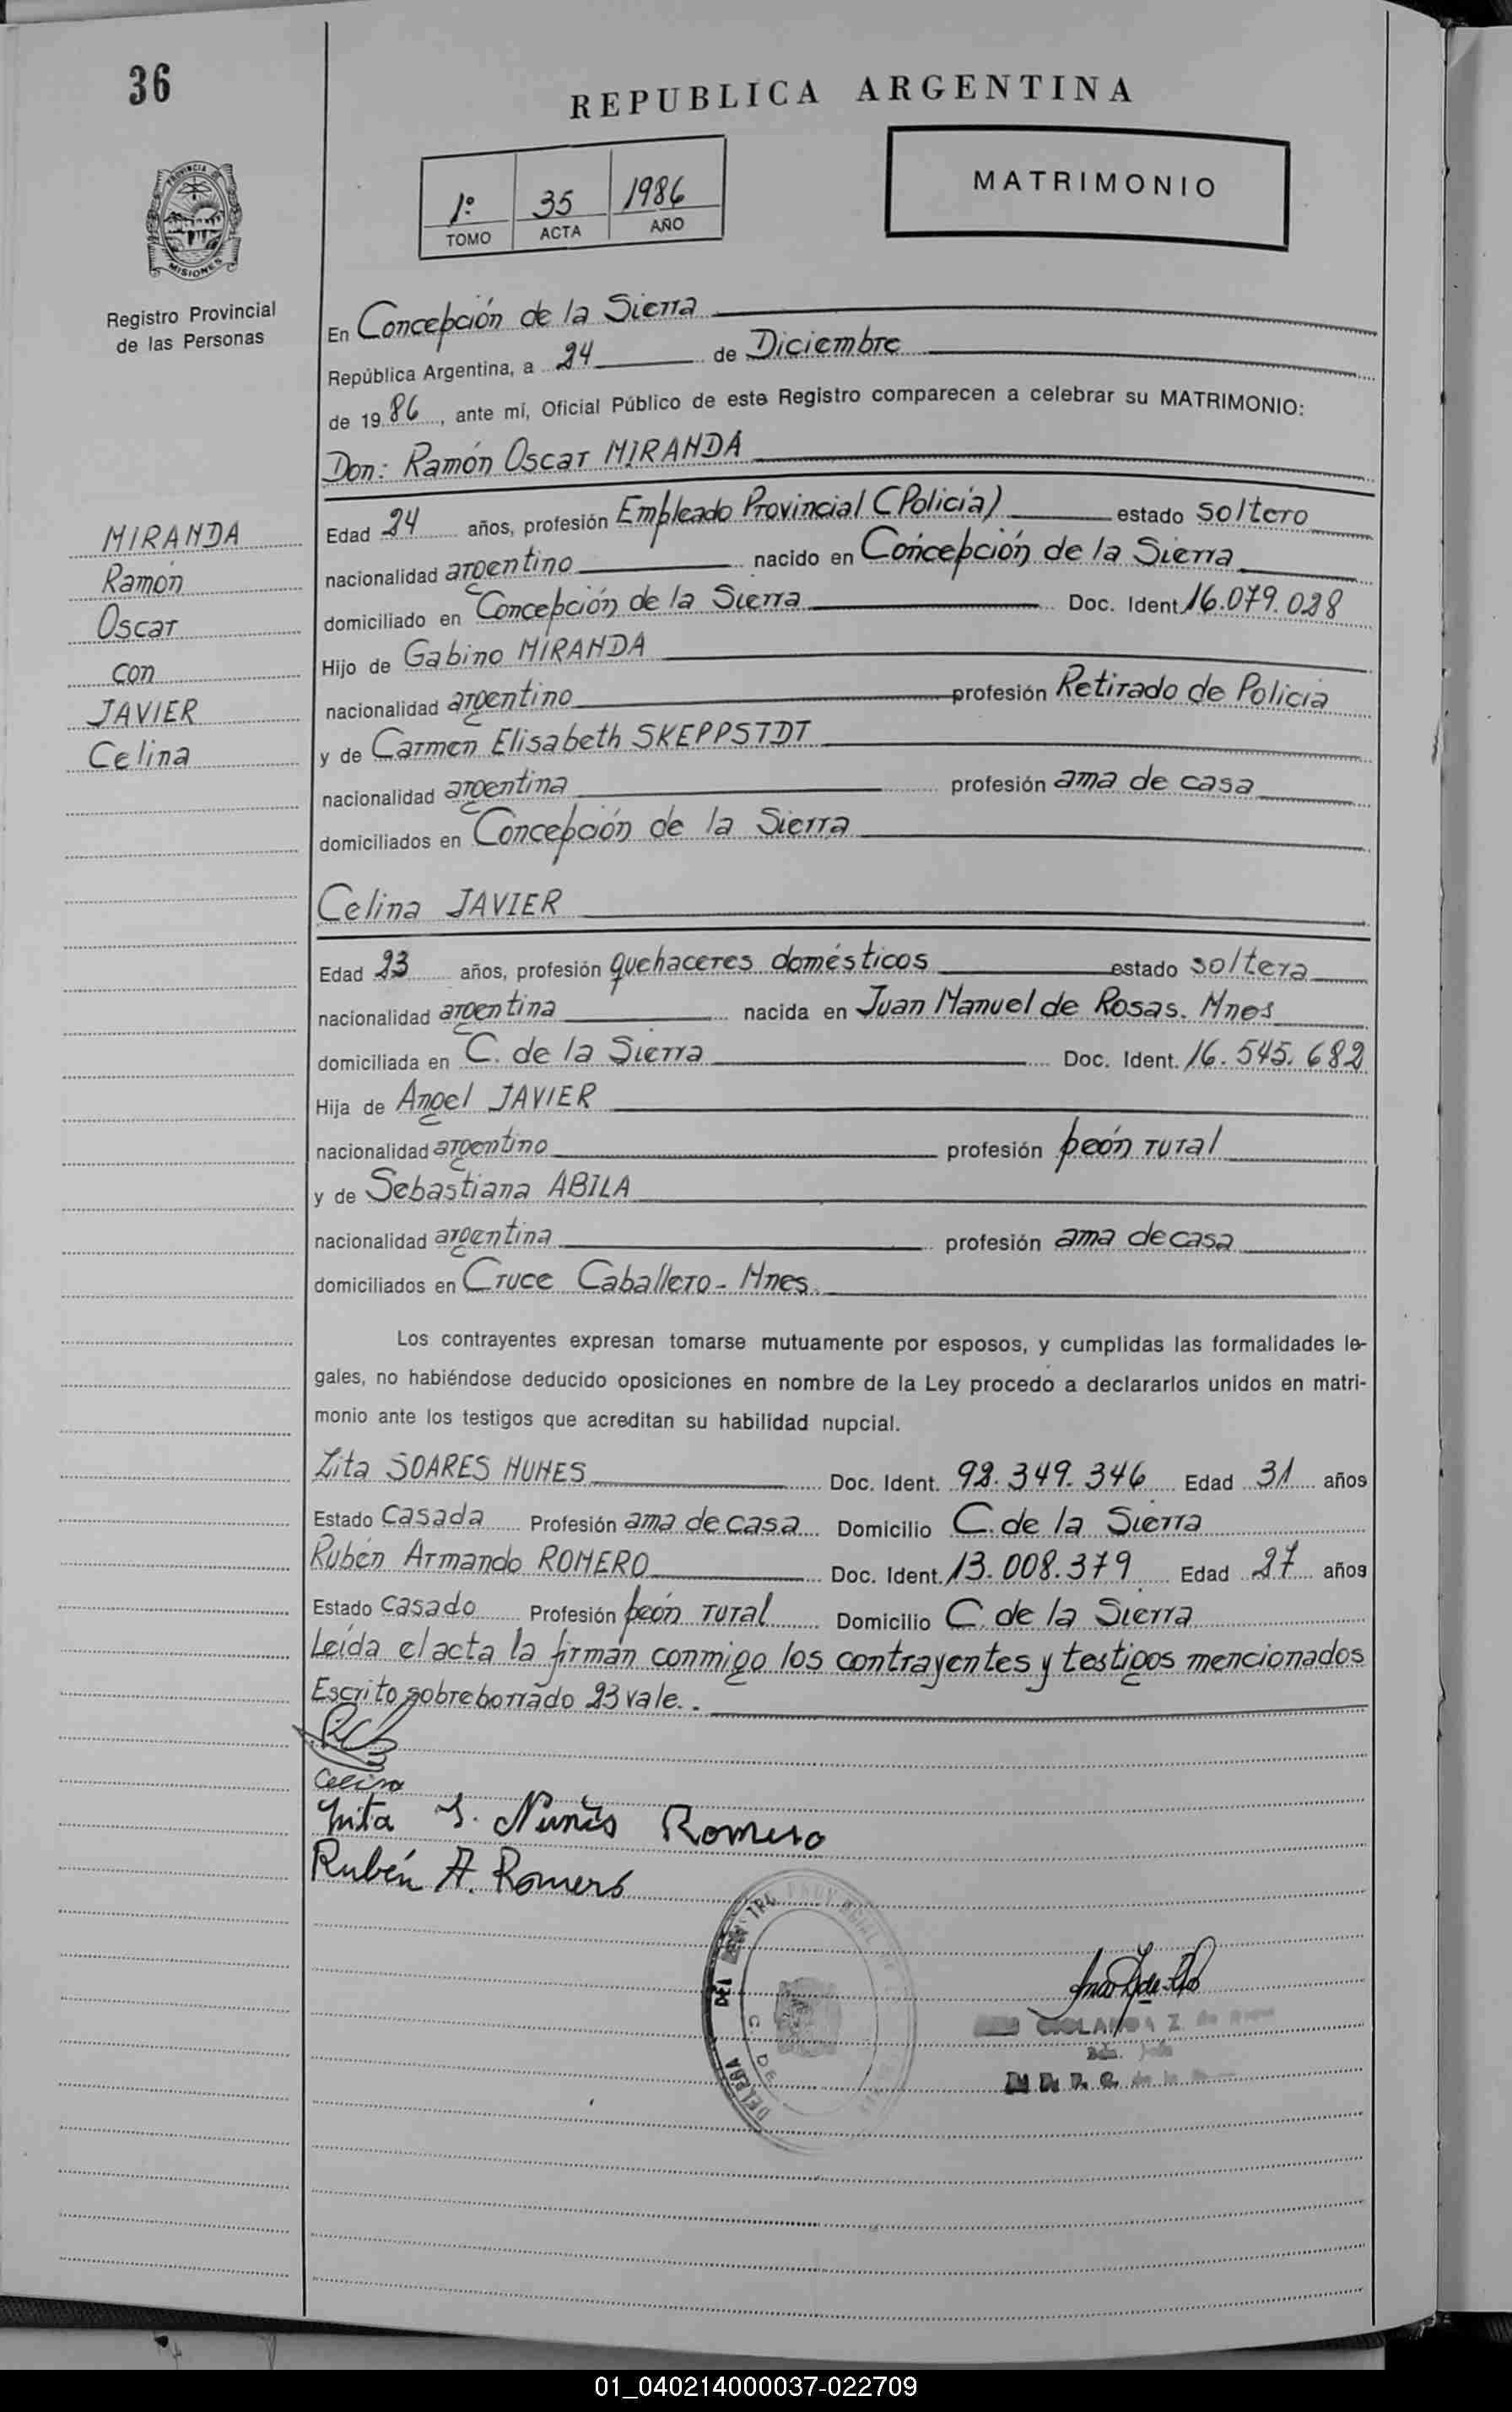 36
REPUBLICA ARGENTINA
PROVINCIA DE
MISIONES
1º 35 1986
TOMO ACTA AÑO
MATRIMONIO
Registro Provincial
de las Personas
En Concepción de la Sierra
República Argentina, a 24 de Diciembre
de 1986, ante mí, Oficial Público de este Registro comparecen a celebrar su MATRIMONIO:
Don: Ramón Oscar MIRANDA
MIRANDA
Ramón
Oscar
con
JAVIER
Celina
Edad 24 años, profesión Empleado Provincial (Policía) estado soltero
nacionalidad argentino nacido en Concepción de la Sierra
domiciliado en Concepción de la Sierra Doc. Ident. 16.079.028
Hijo de Gabino MIRANDA
nacionalidad argentino profesión Retirado de Policia
y de Carmen Elisabeth SKEPPSTDT
nacionalidad argentina profesión ama de casa
domiciliados en Concepción de la Sierra
Celina JAVIER
Edad 23 años, profesión quehaceres domésticos estado soltera
nacionalidad argentina nacida en Juan Manuel de Rosas. Mnes
domiciliada en C. de la Sierra Doc. Ident. 16.545.682
Hija de Angel JAVIER
nacionalidad argentino profesión peón rural
y de Sebastiana ABILA
nacionalidad argentina profesión ama de casa
domiciliados en Cruce Caballero - Mnes.
Los contrayentes expresan tomarse mutuamente por esposos, y cumplidas las formalidades le-
gales, no habiéndose deducido oposiciones en nombre de la Ley procedo a declararlos unidos en matri-
monio ante los testigos que acreditan su habilidad nupcial.
Lita SOARES NUNES Doc. Ident. 92.349.346 Edad 31 años
Estado casada Profesión ama de casa Domicilio C. de la Sierra
Rubén Armando ROMERO Doc. Ident. 13.008.379 Edad 27 años
Estado casado Profesión peón rural Domicilio C. de la Sierra
Leída el acta la firman conmigo los contrayentes y testigos mencionados
Escrito sobreborrado 23 vale.
Celina
Lita S. Nunes Romero
Rubén A. Romero
C. DE
Z. de
01_040214000037-022709